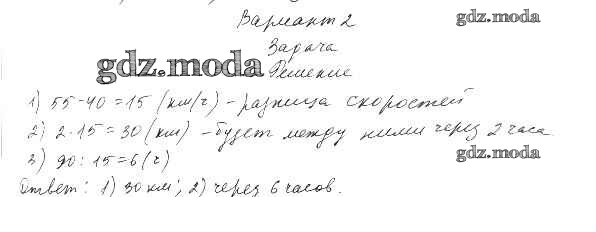 Вариант 2
gdz.moda
Задача
gdz.moda
Решение
1) 55-40=15 (км/ч) - разница скоростей
2) 2·15=30 (км) - будет между ними через 2 часа.
3) 90:15=6 (ч)
gdz.moda
Ответ: 1) 30 км; 2) через 6 часов.